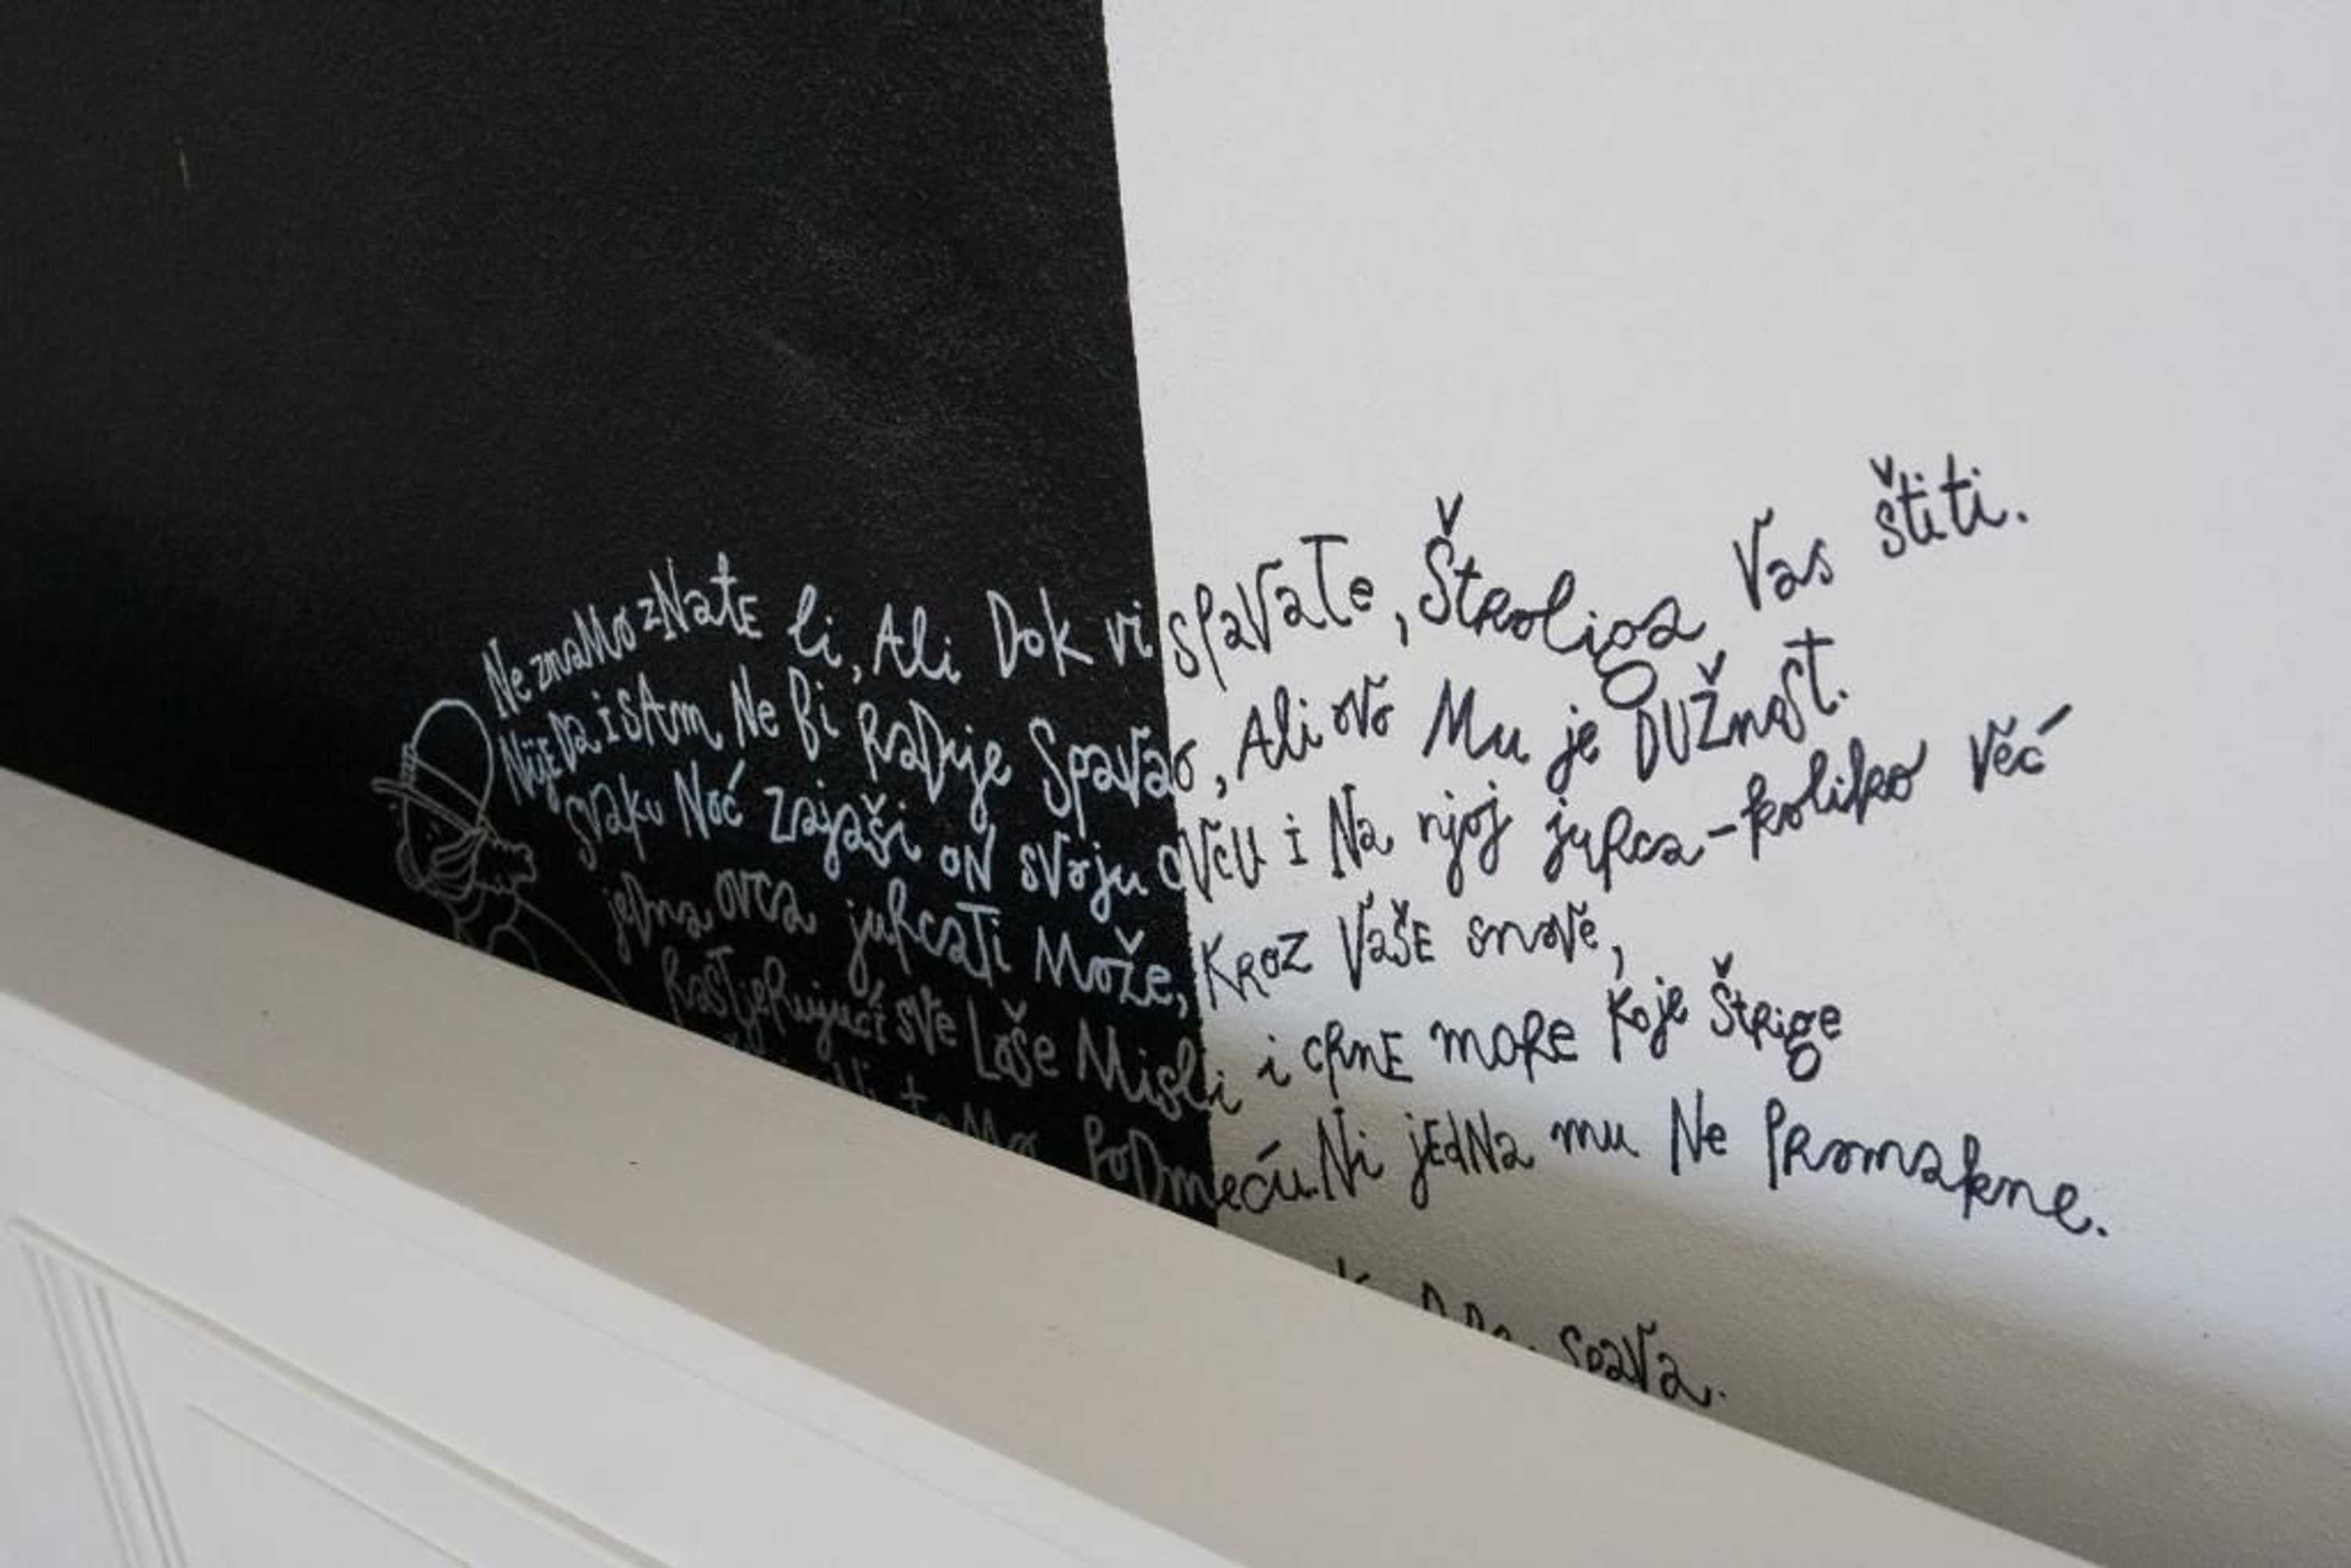 Ne znamo znate li, Ali Dok vi spavate, Štroliga Vas štiti.
Nije Da i sam Ne bi Radije Spavao, Ali ovo Mu je DUŽnost.
svaku Noć zajaši oN svoju ovcu i Na njoj jurca - koliko već
jedna ovca jurcati Može, kroz VašE snove,
Rastjerujući sve Loše Misli i cRnE moRe koje Štrige
podmeću. Ni jEdNa mu Ne promakne.
spava.